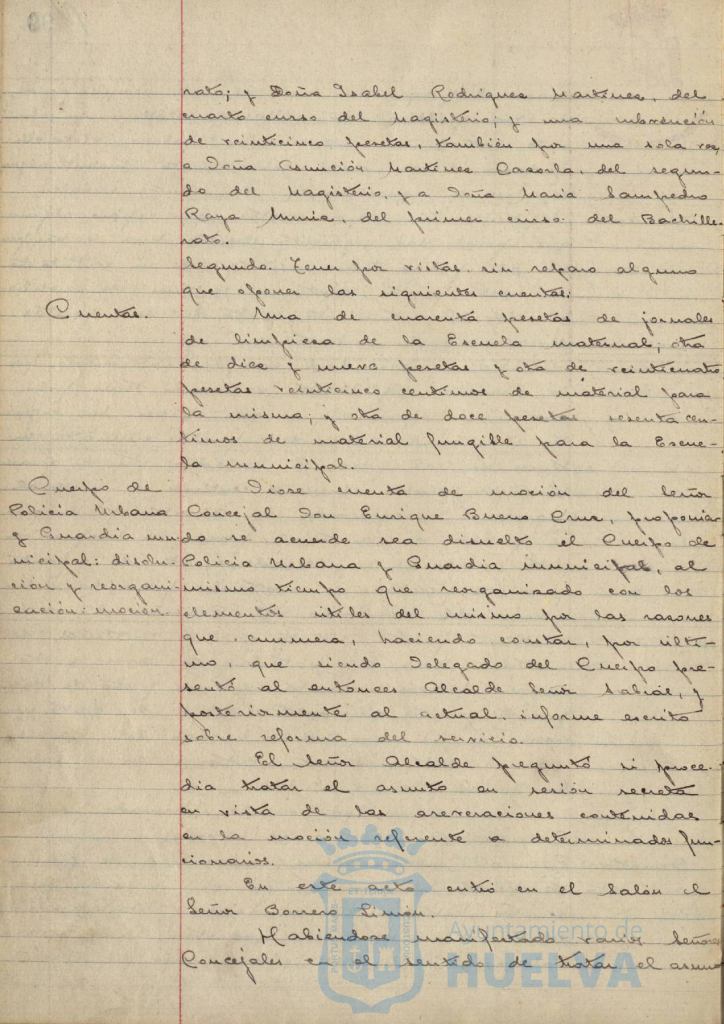 rato; y Doña Isabel Rodriguez Martinez, del
cuarto curso del Magisterio; y una subvención
de veinticinco pesetas, también por una sola vez,
a Doña Asunción Martinez Cazorla, del segun-
do del Magisterio, y a Doña Maria Sampedro
Raya Muria, del primer curso del Bachille-
rato.
Segundo. Tener por vistas sin reparo alguno
que oponer las siguientes cuentas:
Cuentas.
Una de cuarenta pesetas de jornales
de limpieza de la Escuela maternal; otra
de diez y nueve pesetas y otra de veinticuatro
pesetas veinticinco centimos de material para
la misma; y otra de doce pesetas sesenta cen-
timos de material fungible para la Escue-
la municipal.
Cuerpo de
Policia Urbana
y Guardia mu-
nicipal: disolu-
ción y reorgani-
zación: moción.
Diose cuenta de moción del Señor
Concejal Don Enrique Bueno Cruz, proponien-
do se acuerde sea disuelto el Cuerpo de
Policia Urbana y Guardia municipal, al
mismo tiempo que reorganizado con los
elementos utiles del mismo por las razones
que enumera, haciendo constar, por ulti-
mo, que siendo Delegado del Cuerpo pre-
sentó al entonces Alcalde Señor Sabrás, y
posteriormente al actual, informe escrito
sobre reforma del servicio.
El Señor Alcalde preguntó si proce-
dia tratar el asunto en sesión secreta
en vista de las aseveraciones contenidas
en la moción referente a determinados fun-
cionarios.
En este acto entró en el Salón el
Señor Borrero Limón.
Habiendose manifestado varios Señores
Concejales en el sentido de tratar el asunto
Ayuntamiento de
HUELVA